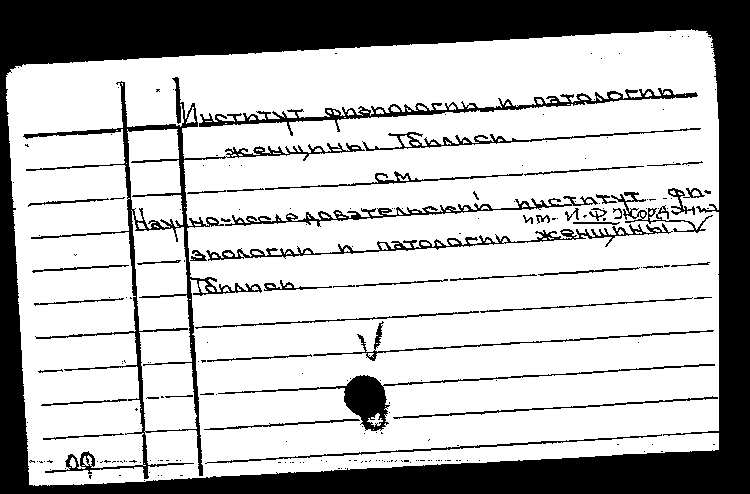 Институт физиологии и патологии
женщины. Тбилиси.
см.
Научно-исследовательский институт фи-
им. И.Ф. Жордания
зиологии и патологии женщины. V
Тбилиси.
V
оф